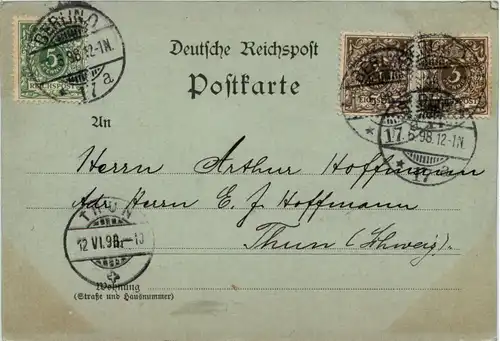 Deutsche Reichspost
Postkarte
An
Herrn Arthur Hoffmann
Adr. Herrn E. J. Hoffmann
Thun (Schweiz)
Wohnung
(Straße und Hausnummer)
BERLIN O
17a
5
3
BERLIN
17.6.98.12-1N.
THUN
12 VI.98.-10